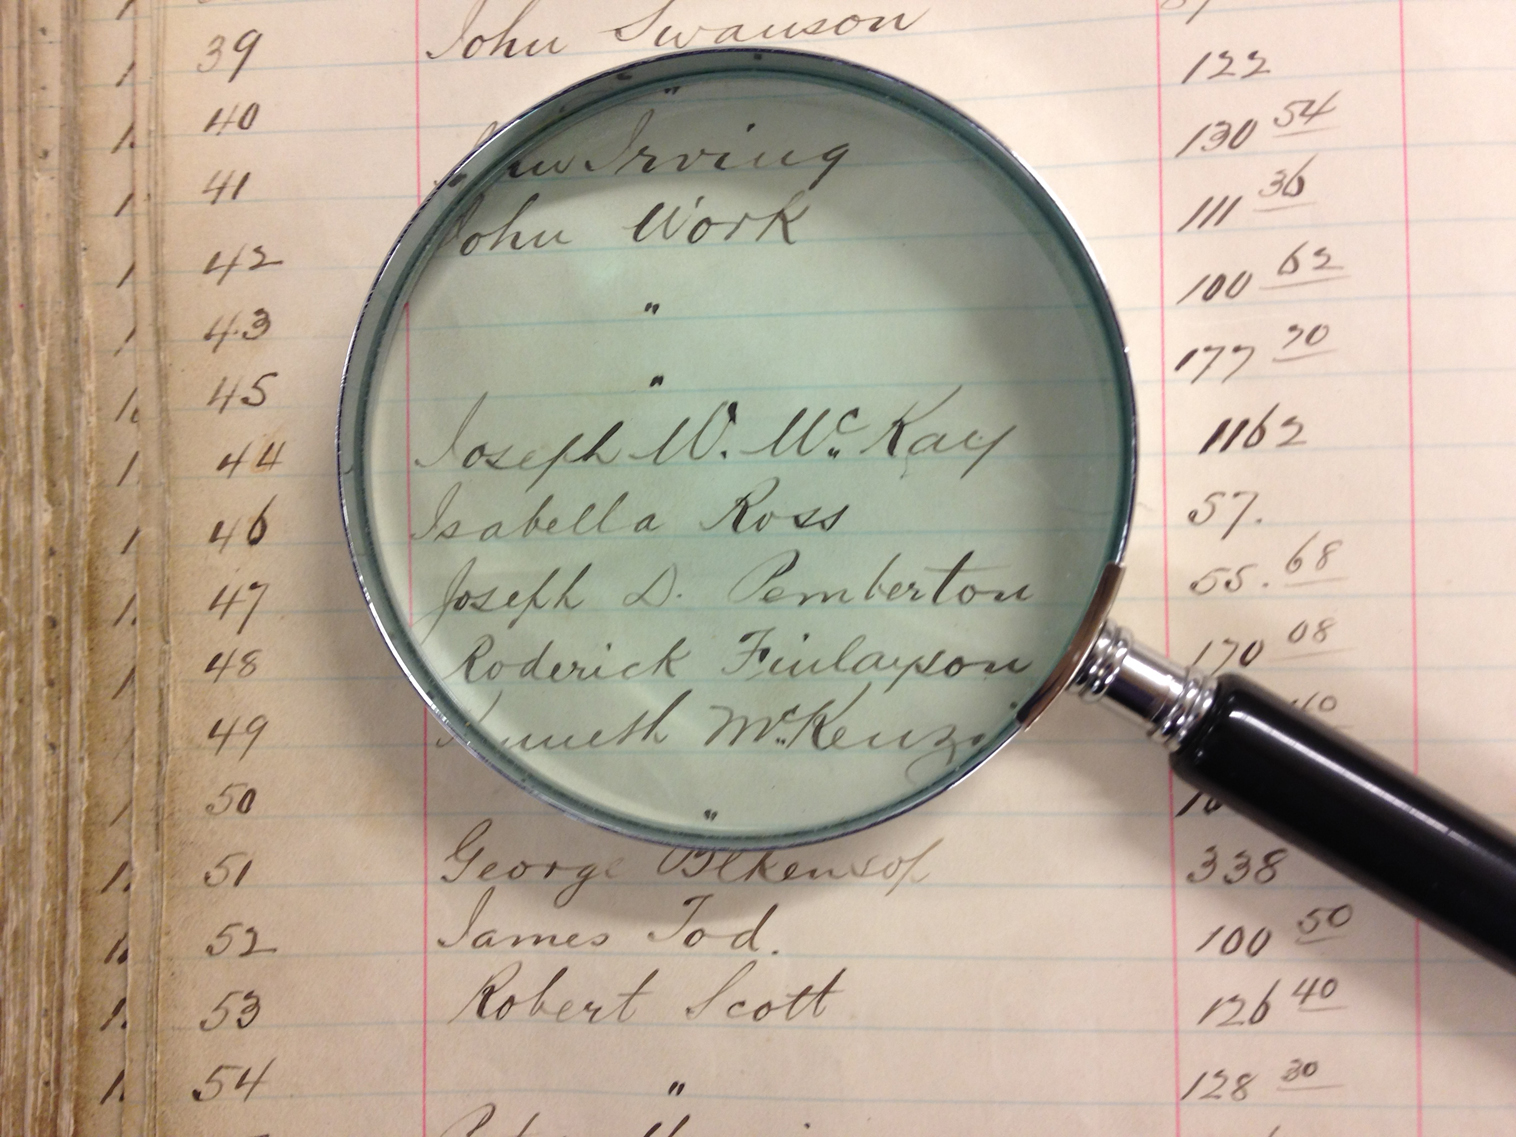 39 John Swanson
40 " 122
41 Irving 130 54
42 John Work 111 36
43 " 100 62
45 " 177 70
44 Joseph W. McKay 1162
46 Isabella Ross 57.
47 Joseph D. Pemberton 55. 68
48 Roderick Finlayson 170 08
49 Kenneth McKenzi 40
50 "
51 George Blkensop 338
52 James Tod. 100 50
53 Robert Scott 126 40
54 " 128 30